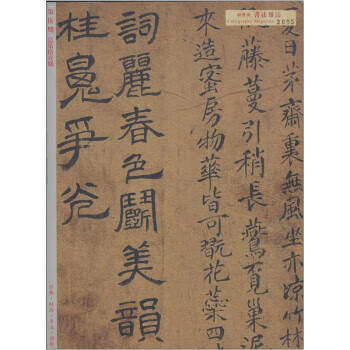 書法雜誌
Calligraphy Magazine
2005
夏日茅齋裏無風坐亦涼竹林
藤蔓引稍長鷰覓巢泥
來造蜜房物華皆可翫花蘂四
詞麗春色鬬美韻
桂爭光